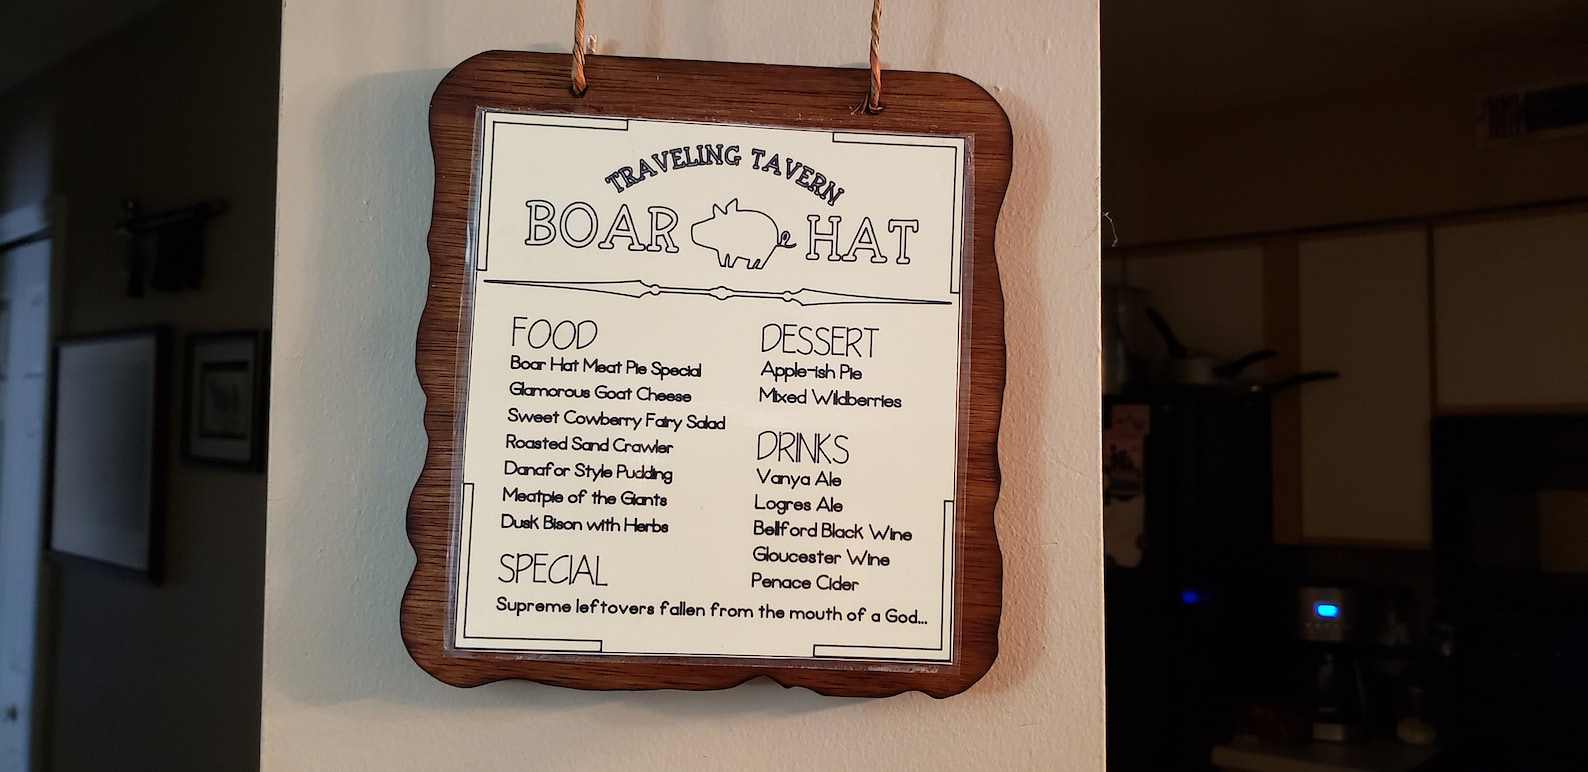 TRAVELING TAVERN
BOAR HAT
FOOD
Boar Hat Meat Pie Special
Glamorous Goat Cheese
Sweet Cowberry Fairy Salad
Roasted Sand Crawler
Danafor Style Pudding
Meatpie of the Giants
Dusk Bison with Herbs
SPECIAL
Supreme leftovers fallen from the mouth of a God...
DESSERT
Apple-ish Pie
Mixed Wildberries
DRINKS
Vanya Ale
Logres Ale
Bellford Black Wine
Gloucester Wine
Penace Cider